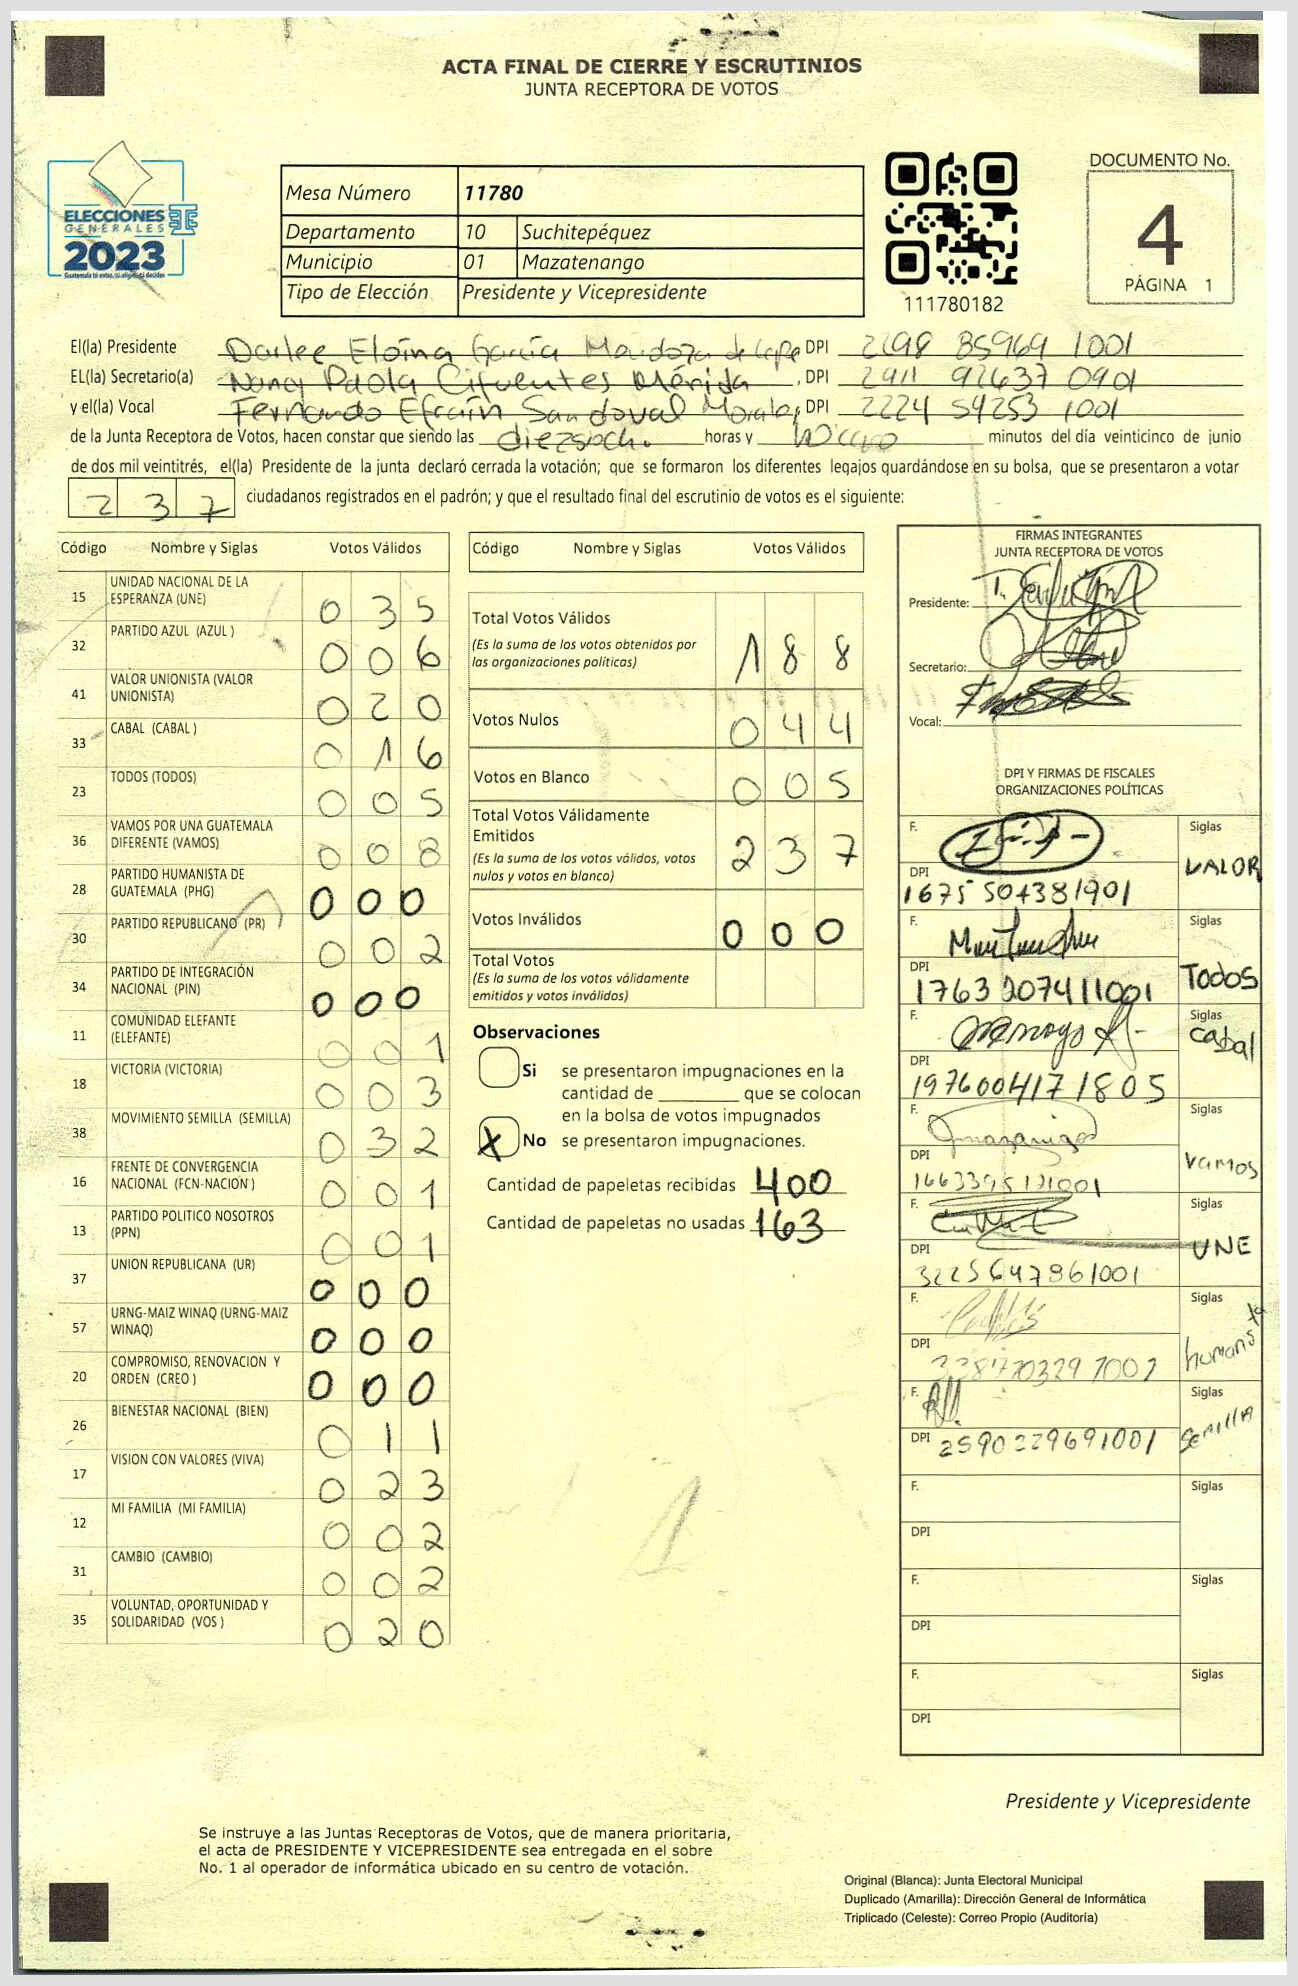 ACTA FINAL DE CIERRE Y ESCRUTINIOS
JUNTA RECEPTORA DE VOTOS
ELECCIONES
GENERALES
2023
Mesa Número 11780
Departamento 10 Suchitepéquez
Municipio 01 Mazatenango
Tipo de Elección Presidente y Vicepresidente
111780182
DOCUMENTO No.
4
PÁGINA 1
El(la) Presidente Darlee Eloína García Mendoza de DPI 2298 85969 1001
EL(la) Secretario(a) Nancy Paola Cifuentes Mérida, DPI 2911 92637 0901
y el(la) Vocal Fernando Efraín Sandoval Morales, DPI 2224 59253 1001
de la Junta Receptora de Votos, hacen constar que siendo las horas y minutos del día veinticinco de junio
de dos mil veintitrés, el(la) Presidente de la junta declaró cerrada la votación; que se formaron los diferentes legajos quardándose en su bolsa, que se presentaron a votar
237 ciudadanos registrados en el padrón; y que el resultado final del escrutinio de votos es el siguiente:
Código Nombre y Siglas Votos Válidos
15 UNIDAD NACIONAL DE LA ESPERANZA (UNE) 035
32 PARTIDO AZUL (AZUL ) 006
41 VALOR UNIONISTA (VALOR UNIONISTA) 020
33 CABAL (CABAL ) 016
23 TODOS (TODOS) 005
36 VAMOS POR UNA GUATEMALA DIFERENTE (VAMOS) 008
28 PARTIDO HUMANISTA DE GUATEMALA (PHG) 000
30 PARTIDO REPUBLICANO (PR) 002
34 PARTIDO DE INTEGRACIÓN NACIONAL (PIN) 000
11 COMUNIDAD ELEFANTE (ELEFANTE) 001
18 VICTORIA (VICTORIA) 003
38 MOVIMIENTO SEMILLA (SEMILLA) 032
16 FRENTE DE CONVERGENCIA NACIONAL (FCN-NACION ) 001
13 PARTIDO POLITICO NOSOTROS (PPN) 001
37 UNION REPUBLICANA (UR) 000
57 URNG-MAIZ WINAQ (URNG-MAIZ WINAQ) 000
20 COMPROMISO, RENOVACION Y ORDEN (CREO ) 000
26 BIENESTAR NACIONAL (BIEN) 011
17 VISION CON VALORES (VIVA) 023
12 MI FAMILIA (MI FAMILIA) 002
31 CAMBIO (CAMBIO) 002
35 VOLUNTAD, OPORTUNIDAD Y SOLIDARIDAD (VOS ) 020
Código Nombre y Siglas Votos Válidos
Total Votos Válidos 188
(Es la suma de los votos obtenidos por
las organizaciones políticas)
Votos Nulos 044
Votos en Blanco 005
Total Votos Válidamente
Emitidos 237
(Es la suma de los votos válidos, votos
nulos y votos en blanco)
Votos Inválidos 000
Total Votos
(Es la suma de los votos válidamente
emitidos y votos inválidos)
Observaciones
Si se presentaron impugnaciones en la
cantidad de ________ que se colocan
en la bolsa de votos impugnados
X No se presentaron impugnaciones.
Cantidad de papeletas recibidas 400
Cantidad de papeletas no usadas 163
FIRMAS INTEGRANTES
JUNTA RECEPTORA DE VOTOS
Presidente:
Secretario:
Vocal:
DPI Y FIRMAS DE FISCALES
ORGANIZACIONES POLÍTICAS
F. Siglas VALOR
DPI 1675 504381901
F. Siglas TODOS
DPI 1763 207411001
F. Siglas Cabal
DPI 1976004171805
F. Siglas Vamos
DPI 1663395121001
F. Siglas UNE
DPI 3225647861001
F. Siglas humanista
DPI
F. Siglas SEMILLA
DPI 2590229691001
F. Siglas
DPI
F. Siglas
DPI
F. Siglas
DPI
Presidente y Vicepresidente
Se instruye a las Juntas Receptoras de Votos, que de manera prioritaria,
el acta de PRESIDENTE Y VICEPRESIDENTE sea entregada en el sobre
No. 1 al operador de informática ubicado en su centro de votación.
Original (Blanca): Junta Electoral Municipal
Duplicado (Amarilla): Dirección General de Informática
Triplicado (Celeste): Correo Propio (Auditoría)